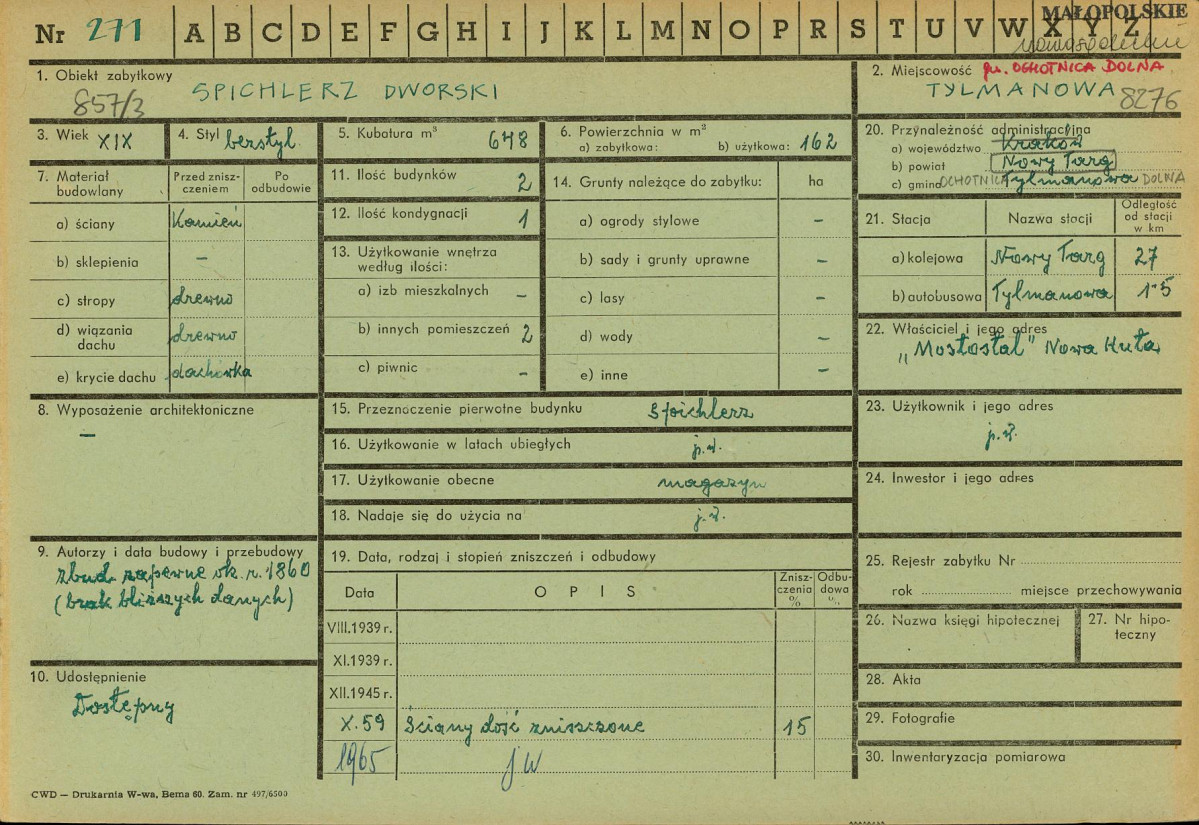 Nr 271 A B C D E F G H I J K L M N O P R S T U V W X Y Z
MAŁOPOLSKIE
nowosądeckie
1. Obiekt zabytkowy
857/3 SPICHLERZ DWORSKI
2. Miejscowość gm. OCHOTNICA DOLNA
TYLMANOWA 8276
3. Wiek XIX
4. Styl bezstyl.
5. Kubatura m³ 648
6. Powierzchnia w m²
a) zabytkowa: b) użytkowa: 162
7. Materiał budowlany
Przed zniszczeniem
Po odbudowie
a) ściany Kamień
b) sklepienia –
c) stropy drewno
d) wiązania dachu drewno
e) krycie dachu dachówka
8. Wyposażenie architektoniczne
–
9. Autorzy i data budowy i przebudowy
zbud. zapewne ok. r. 1860
(brak bliższych danych)
10. Udostępnienie
Dostępny
11. Ilość budynków 2
12. Ilość kondygnacji 1
13. Użytkowanie wnętrza
według ilości:
a) izb mieszkalnych –
b) innych pomieszczeń 2
c) piwnic –
14. Grunty należące do zabytku: ha
a) ogrody stylowe –
b) sady i grunty uprawne –
c) lasy –
d) wody –
e) inne –
15. Przeznaczenie pierwotne budynku spichlerz
16. Użytkowanie w latach ubiegłych j.w.
17. Użytkowanie obecne magazyn
18. Nadaje się do użycia na j.w.
19. Data, rodzaj i stopień zniszczeń i odbudowy
Data OPIS Zniszczenia % Odbudowa %
VIII.1939 r.
XI.1939 r.
XII.1945 r.
X.59 Ściany dość zniszczone 15
1965 jw
20. Przynależność administracyjna
a) województwo Kraków
b) powiat Nowy Targ
c) gmina OCHOTNICA Tylmanowa DOLNA
21. Stacja Nazwa stacji Odległość od stacji w km
a) kolejowa Nowy Targ 27
b) autobusowa Tylmanowa 1·5
22. Właściciel i jego adres
„Mostostal" Nowa Huta
23. Użytkownik i jego adres
j.w.
24. Inwestor i jego adres
25. Rejestr zabytku Nr
rok miejsce przechowywania
26. Nazwa księgi hipotecznej
27. Nr hipoteczny
28. Akta
29. Fotografie
30. Inwentaryzacja pomiarowa
CWD — Drukarnia W-wa, Bema 60. Zam. nr 497/6500